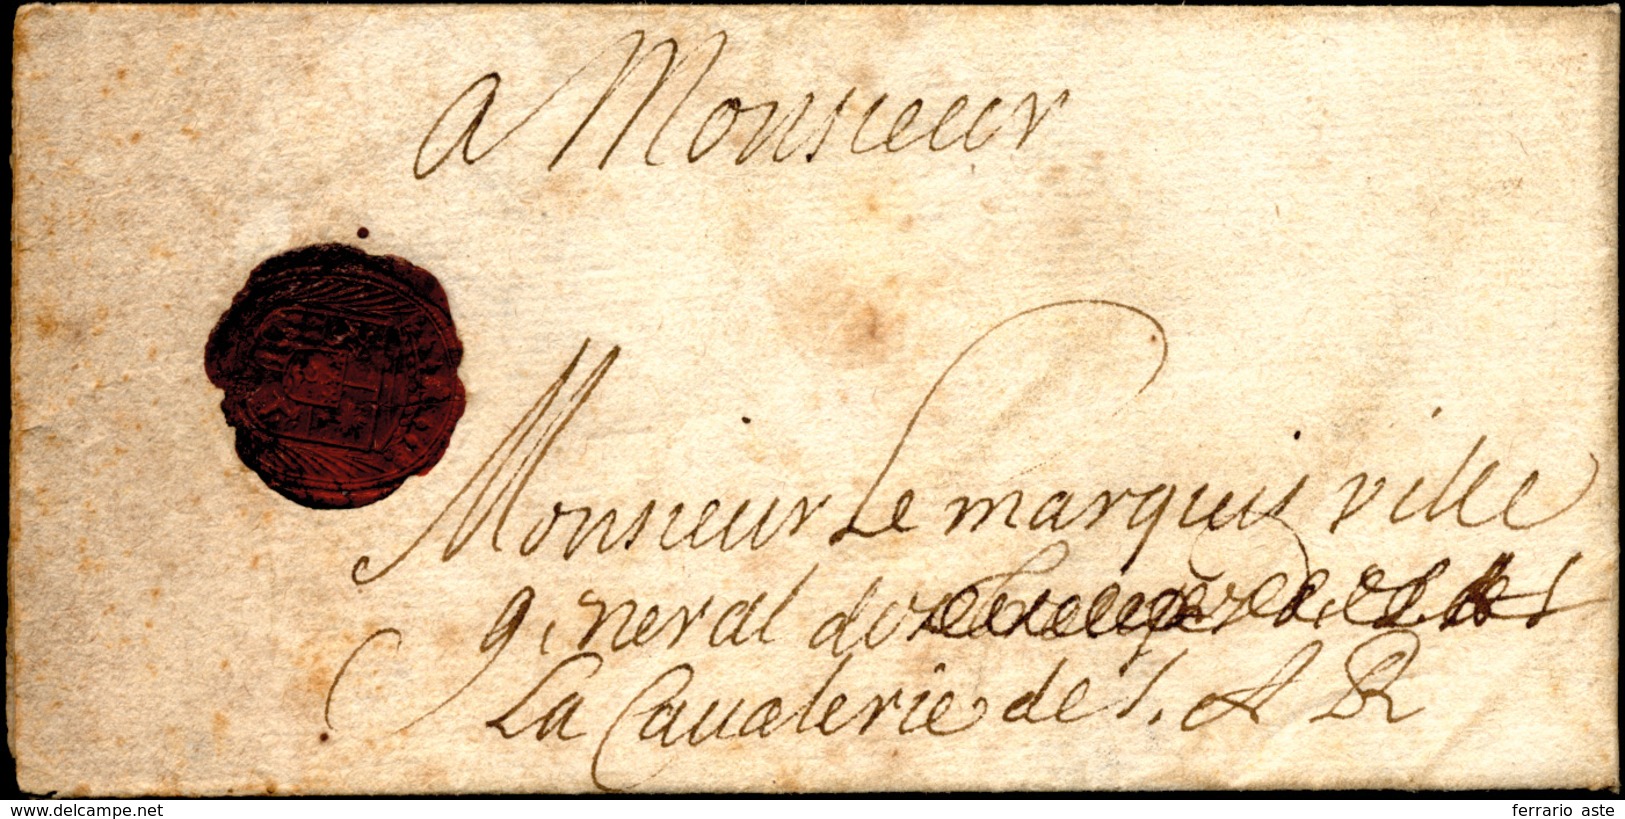 a Monsieur
Monsieur Le marquis ville
general de
La Cavalerie de s. A R
delcampe.net
ferrario aste